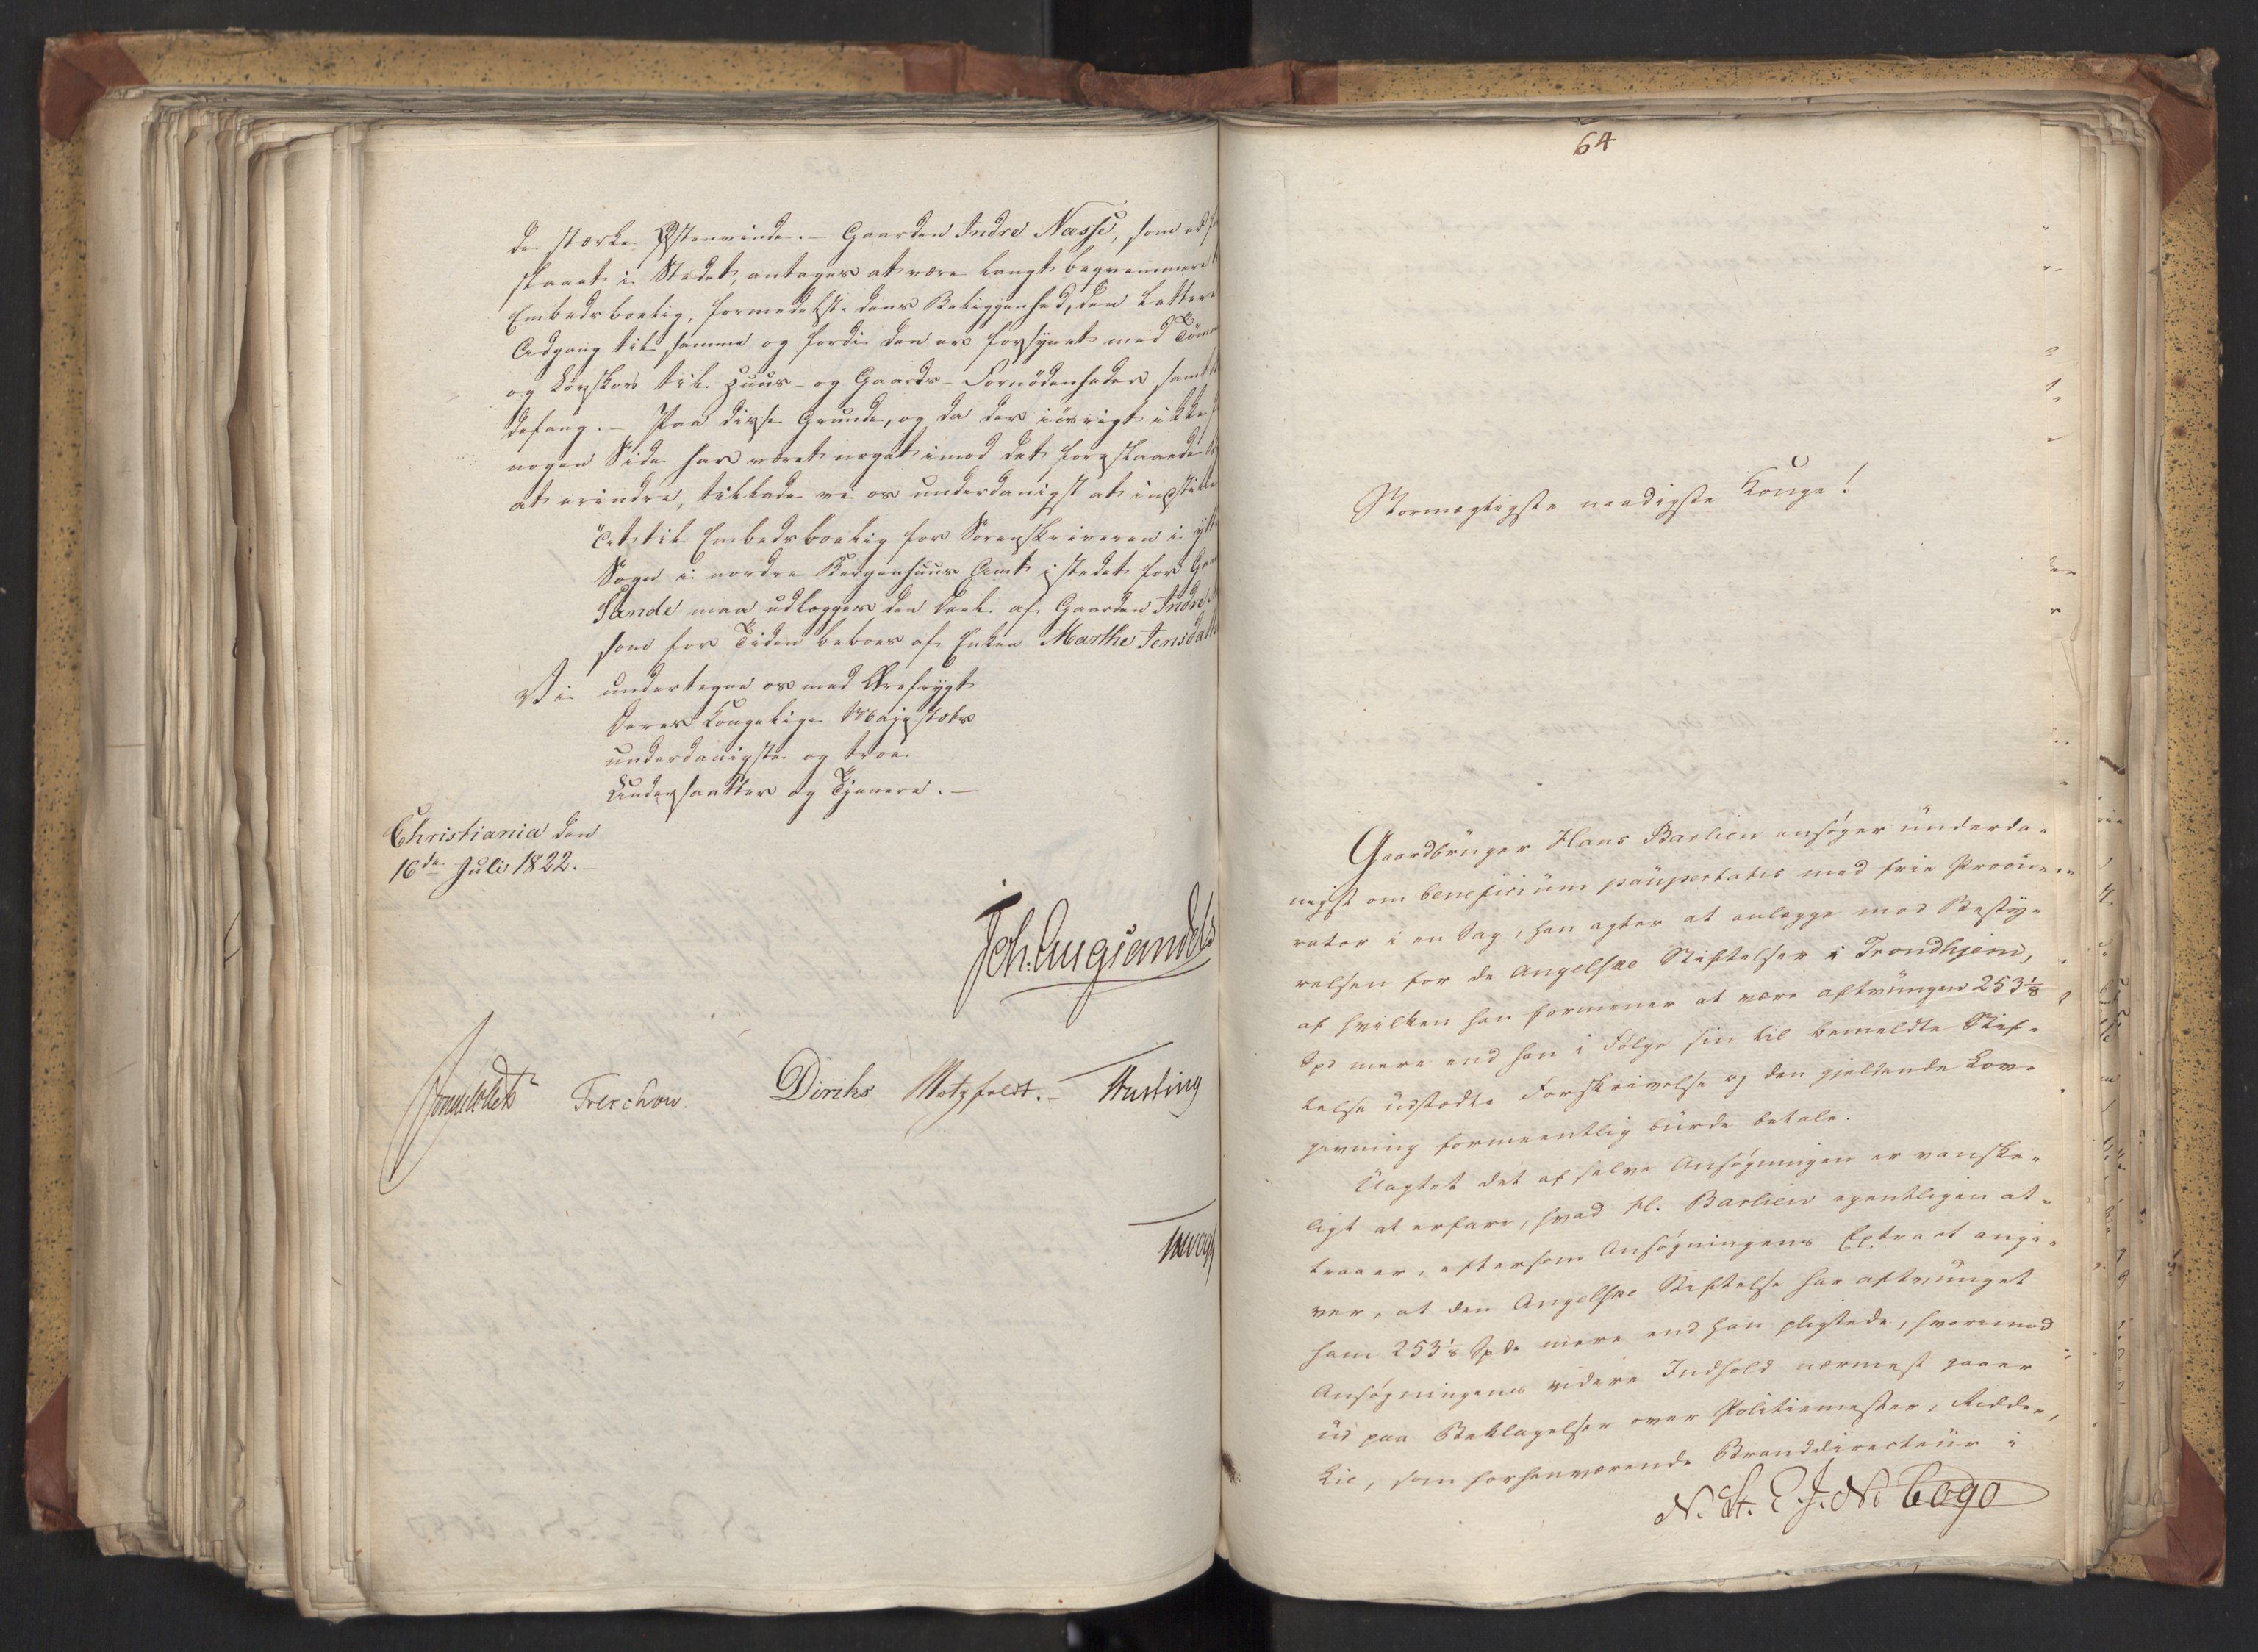 de stærke Østenvinde. – Gaarden Indre Næsse, som er
slaaet i Stedet, antages at være langt beqvemmere
Embedsboelig, formedelst dens Beliggenhed, den lettere
Adgang til samme og fordi den er forsynet med
og Løvskov til Huus- og Gaards-Fornødenheder samt
defang. – Paa disse Grunde, og da der iøvrigt ikke
nogen Side har været noget imod det foreslaaede
at erindre, tillade vi os underdanigst at indstille
"At til Embedsboelig for Sorenskriveren i
Sogn i nordre Bergenhuus Amt istedet for
Sande maa udlægges den Deel af Gaarden Indre
som for Tiden beboes af Enken Marthe Jensdatter
Vi undertegne os med Ærefrygt
Deres Kongelige Majestæts
underdanigste og troe
Undersaatter og Tjenere. –
Christiania den
16de Juli 1822. –
Joh. Aug. Sandels
Sommerhielm Treschow. Diriks Motzfeldt. – Hasting
64
Stormægtigste naadigste Konge!
Gaardbruger Hans Barlien ansøger underda-
nigst om beneficium paupertatis med frie Procu-
rator i en Sag, han agter at anlægge mod Besty-
relsen for de Angelske Stiftelser i Trondhjem,
af hvilken han formener at være aftvungen 253 1/8
Spd mere end han i Følge sin til bemeldte Stif-
telse udstædte Forskrivelse og den gjeldende Lov-
givning formeentlig burde betale.
Uagtet det af selve Ansøgningen er vanske-
ligt at erfare, hvad H. Barlien egentligen at-
traaer, eftersom Ansøgningens Extract angi-
ver, at den Angelske Stiftelse har aftvunget
ham 253 1/8 Spd. mere end han pligtede, hvorimod
Ansøgningens videre Indhold nærmest gaaer
ud paa Beklagelser over Politiemester, Ridder,
Lie, som forhenværende Branddirecteur i
N. St. E. J. No 6090